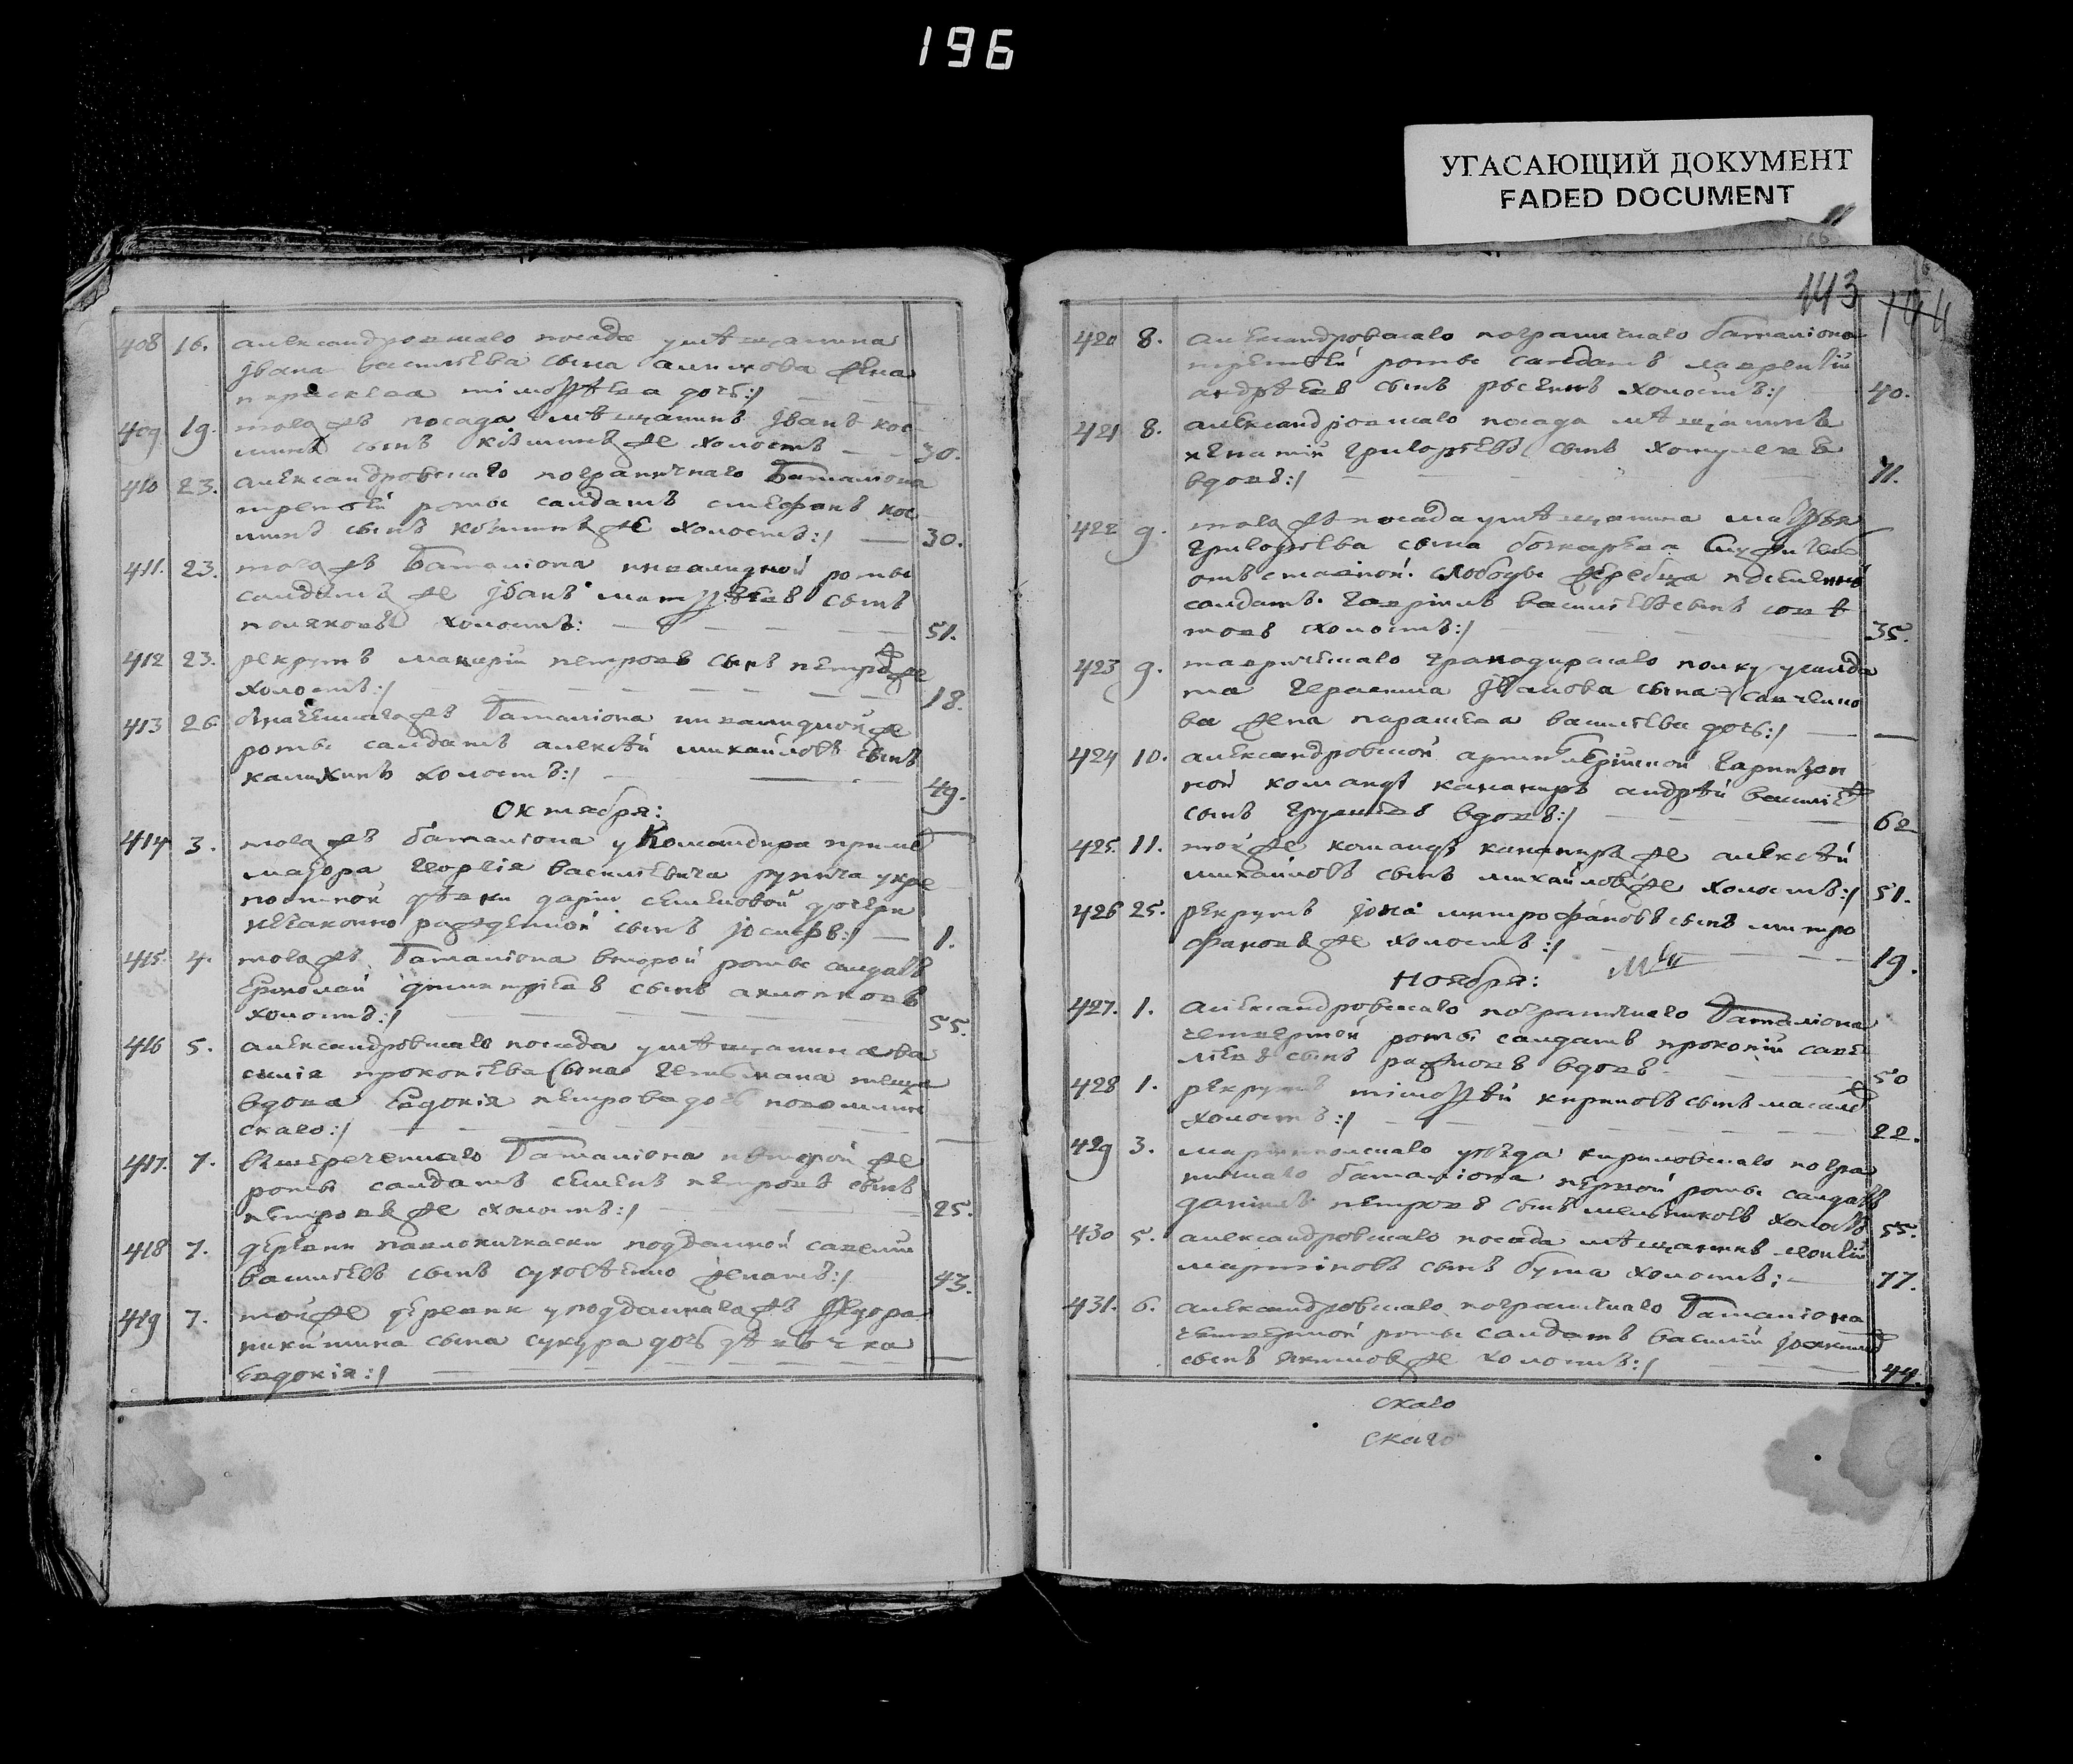 196
УГАСАЮЩИЙ ДОКУМЕНТ
FADED DOCUMENT
143 144
408 16. александровскаго посада у мѣщанина
јвана васильева сына жена
параскева тімоѳѣева дочь:/
409 19. того жъ посада мѣщанинъ јванъ кос
минъ сынъ косминъ же холостъ — 30.
410 23. александровскаго пограничнаго баталиона
третей роты салдатъ стефанъ кос
минъ сынъ косминъ же холостъ:/ — 30.
411. 23. того жъ баталиона инвалидной роты
салдатъ же јванъ матѳѣевъ сынъ
поляковъ холостъ: — 51.
412 23. рекрутъ макарій петровъ сынъ петров же
холостъ:/ — 18.
413 26 означеннаго жъ баталиона инвалидной же
роты салдатъ алексѣй михайловъ сынъ
калихинъ холостъ:/ — 49.
Октября:
414 3. того жъ баталиона у командира примъ
маіора георгія васильевича рунича у кре
постной дѣвки даріи семеновой дочери
незаконно рожденной сынъ јосифъ:/ — 1.
415. 4. того жъ баталиона второй роты салдатъ
ермолай дмитріевъ сынъ
холостъ:/ — 55.
416 5. александровскаго посада у мѣщанина ва
силія прокопіева сына гетмана теща
вдова евдокія петрова дочь
скаго:/
417. 7. вышеречениаго баталиона которой же
роты салдатъ семенъ петровъ сынъ
петровъ же холостъ:/ — 25.
418 7. деревни павлокичкаски подданной савелій
васильевъ сынъ женатъ:/ 43.
419 7. той же деревни у подданнаго жъ федора
никитина сына сукура дочь дѣвочка
евдокія:/
420 8. александровскаго пограничнаго баталиона
третьей роты салдатъ лаврентій
андрѣевъ сынъ росенъ холостъ:/ 40.
421 8. александровскаго посада мѣщанинъ
игнатій григорьевъ сынъ
вдовъ:/ — 71.
422 9. того жъ посада у мѣщанина матѳѣя
григорьева сына бочкарева
отъставной. слободы жеребца поселеннъ
салдатъ. гавріилъ васильевъ сынъ совѣ
товъ холостъ:/ — 35.
423 9. таврическаго гранодирскаго полку у салда
та герасима јванова сына савченко
ва жена параскева васильева дочь:/
424 10. александровской артиллерійской гарнизон
ной команды канониръ андрѣй василиев
сынъ вдовъ:/ — 62
425. 11. той же команды канониръ же алексѣй
михайловъ сынъ михайловъ же холостъ:/ 51.
426 25. рекрутъ јона митрофановъ сынъ митро
фановъ же холостъ:/ — 19.
Ноября:
427. 1. александровскаго пограничнаго баталиона
четвертой роты салдатъ прокопій саве
ліевъ сынъ вдовъ — 50
428 1. рекрутъ тімоѳѣй кириловъ сынъ
холостъ:/ — 22.
429 3. маріупольскаго уѣзда кириловскаго погра
ничнаго баталиона первой роты салдатъ
данилъ петровъ сынъ мельниковъ холостъ 55.
430 5. александровскаго посада мѣщанинъ леонтій
мартіновъ сынъ бута холостъ: — 77.
431. 6. александровскаго пограничнаго баталиона
четвертой роты салдатъ василій јоакимов
сынъ якимовъ же холостъ:/ — 44.
скаго
скаго